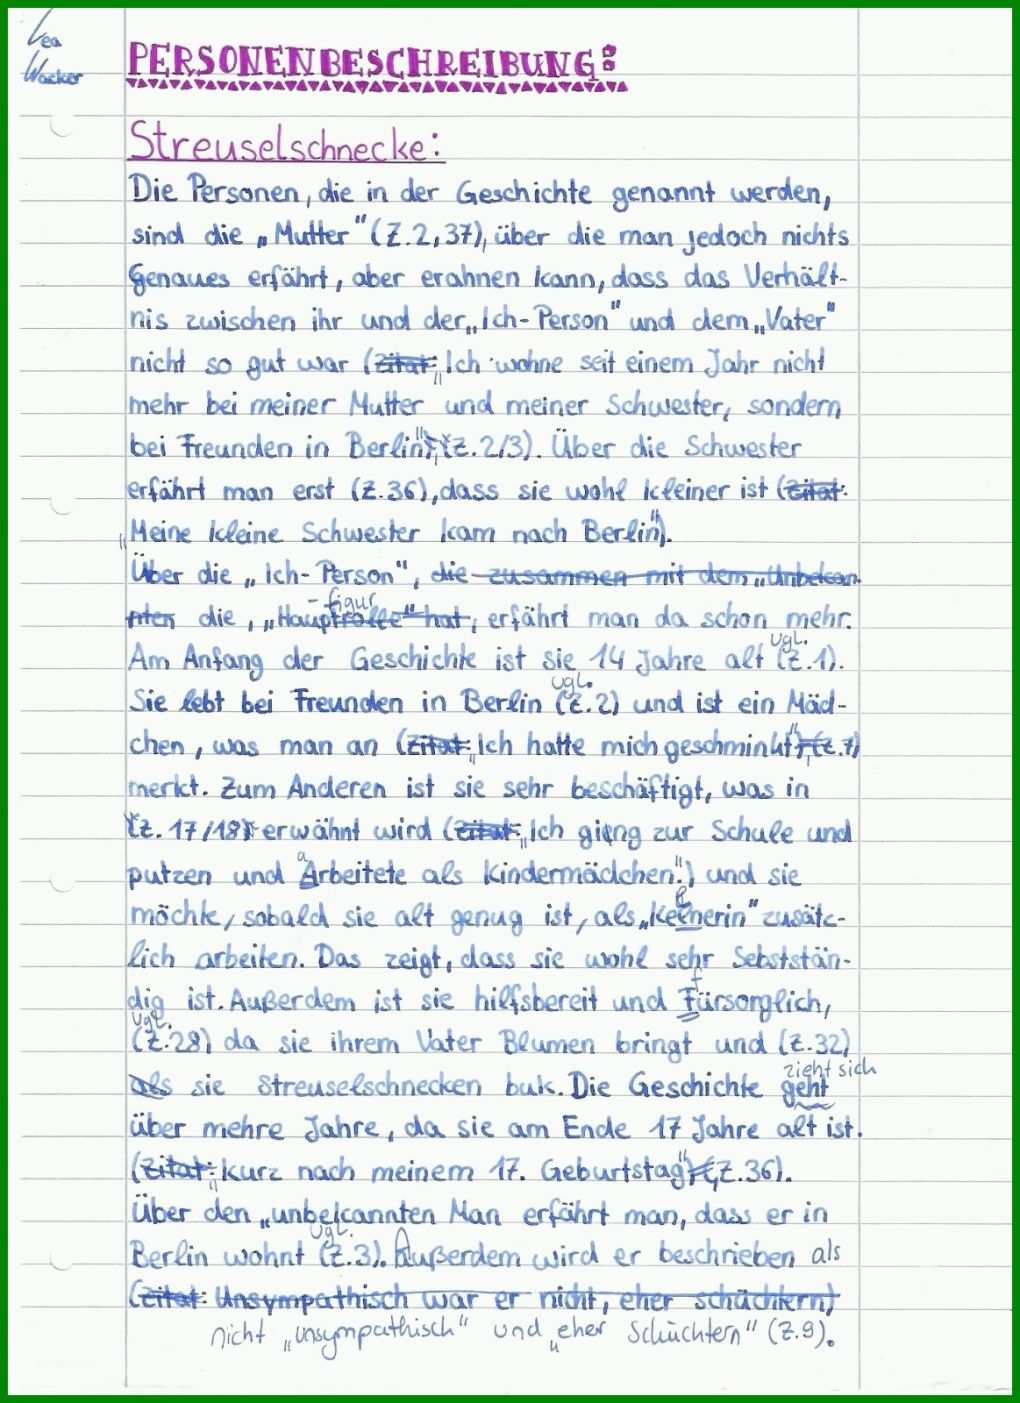 Lea
Wacker
PERSONENBESCHREIBUNG:
Streuselschnecke:
Die Personen, die in der Geschichte genannt werden,
sind die „Mutter" (Z.2,37), über die man jedoch nichts
Genaues erfährt, aber erahnen kann, dass das Verhält-
nis zwischen ihr und der „Ich-Person" und dem „Vater"
nicht so gut war (Zitat: „Ich wohne seit einem Jahr nicht
mehr bei meiner Mutter und meiner Schwester, sondern
bei Freunden in Berlin", (Z.2/3). Über die Schwester
erfährt man erst (Z.36), dass sie wohl kleiner ist (Zitat:
„Meine kleine Schwester kam nach Berlin").
Über die „Ich-Person", die zusammen mit dem „Unbekan
nten die, „Hauptrolle" hat, erfährt man da schon mehr.
-figur
Am Anfang der Geschichte ist sie 14 Jahre alt (Z.1).
vgl.
Sie lebt bei Freunden in Berlin (Z.2) und ist ein Mäd-
vgl.
chen, was man an (Zitat: „Ich hatte mich geschminkt", (Z.7)
merkt. Zum Anderen ist sie sehr beschäftigt, was in
(Z.17/18) erwähnt wird (Zitat: „Ich gieng zur Schule und
putzen und Arbeitete als Kindermädchen.") und sie
a
möchte, sobald sie alt genug ist, als „Kelnerin" zusätz-
l
lich arbeiten. Das zeigt, dass sie wohl sehr Sebststän-
dig ist. Außerdem ist sie hilfsbereit und Fürsorglich,
f
vgl.
(Z.28) da sie ihrem Vater Blumen bringt und (Z.32)
als sie Streuselschnecken buk. Die Geschichte geht
zieht sich
über mehre Jahre, da sie am Ende 17 Jahre alt ist.
(Zitat: „kurz nach meinem 17. Geburtstag", (Z.36).
Über den „unbekannten Man erfährt man, dass er in
Berlin wohnt (Z.3). Außerdem wird er beschrieben als
vgl.
(Zitat: Unsympathisch war er nicht, eher schüchtern)
nicht „unsympathisch" und „eher Schüchtern" (Z.9).